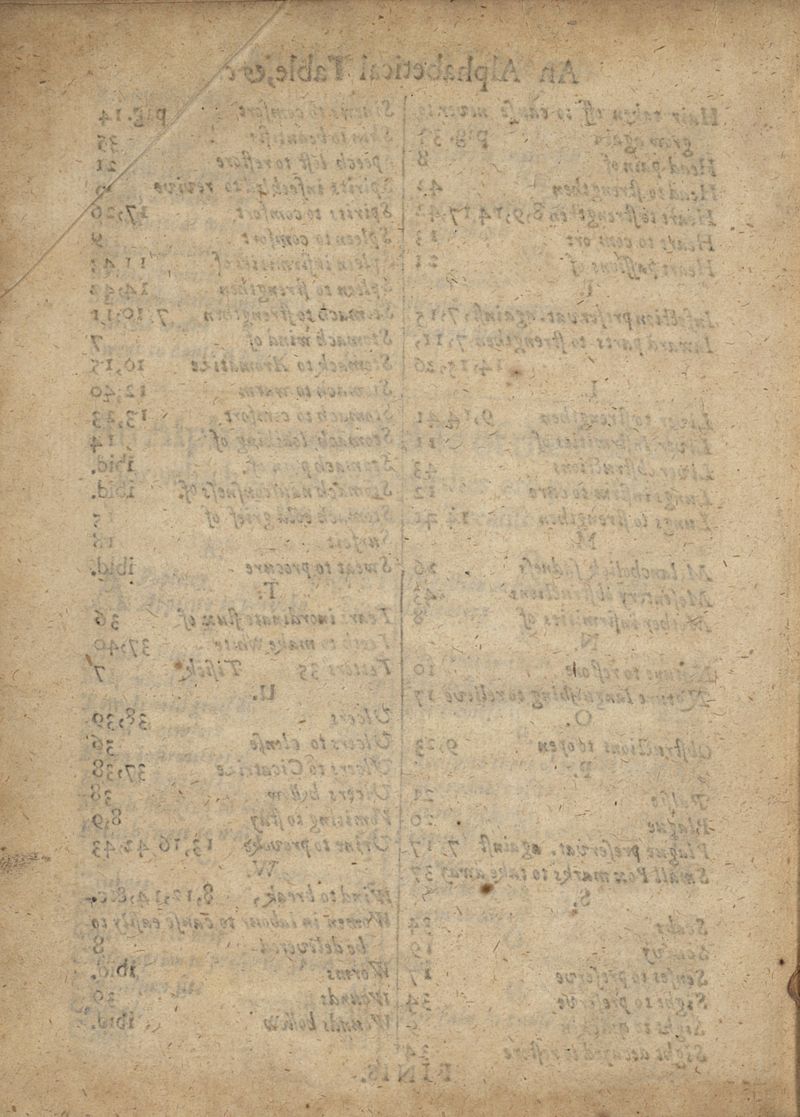 An Alphabetical Table, &c
Hair taken off to cauſe never to
grow again pag. 37
Head pain of 8
Head to ſtrengthen 42
Heart to ſtrengthen 8,9,14,17,42
Heart to comfort
Heart paſſions of 21
I
Infection preſervat. againſt, 7,15
Inward parts to ſtrengthen 7,11,
14,15,26
Liver to ſtrengthen 9,14,41
Liver infirmities of 11
Liver obſtructions 43
Lungs infirm to cure 12
Lungs to ſtrengthen 14
M
Melancholick ſadneſs 26
Meſentery obſtructions 43
Mother infirmities of 8
N
Nature to reſtore 10
Nature languiſhing to relieve 17
O.
Obſtructions to open 9,23
P.
Palſie 21
Plague 20
Plague preſervat. againſt 7,17
Small Pox marks to take away 37
S.
Scabs
Scurvy 19
Senſes to preſerve 17
Sight to preſerve 34
Sight to quicken
Sight decayed to reſtore 34
Sinews to comfort pag. 14
Skin to beautifie 35
Speech loſt to reſtore 21
Spirits to revive
Spirits to comfort 17,20
Spleen to comfort 9
Spleen infirmities of 11,43
Spleen to ſtrengthen 14,42
Stomach to ſtrengthen 7,10,11
Stomach wind of 7
Stomach to Aromatize 10,15
Stomach to warm 12,40
Stomach to comfort 13,23
Stomach loathing of 14
Stomach pain of. ibid.
Stomach nauſeouſneſs of. ibid.
Stomach cold grief of 15
Surfeit 18
Sweat to procure ibid.
T.
Tears inordinate flux of 36
Teeth to make White 37,40
Tetters 35 Tiſick 7
U.
Ulcers 38,39
Ulcers to clenſe 36
Ulcers to Cicatrize 37,38
Ulcers hollow 38
Vomiting to ſtay 8,9
Urine to provoke 13,16,42,43
W.
Wind to break, 8,12,14,&c.
Women in labour to cauſe eaſily to
be delivered 8
Worms ibid.
Wounds 30
Wounds hollow ibid.
FINIS.